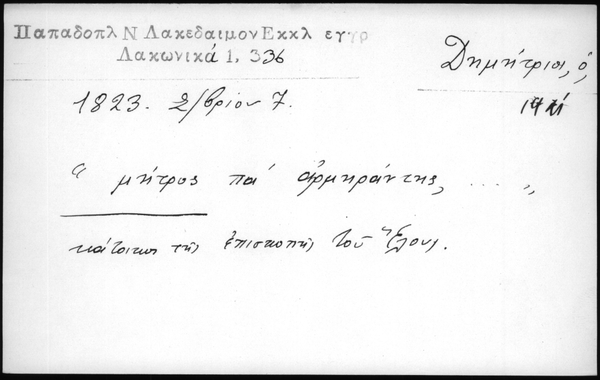 Παπαδοπλ Ν Λακεδαιμον Εκκλ εγγρ
Λακωνικά 1, 336
Δημήτριος, ὁ,
1823. 2/βρίου 7.
" μήτρος πα' ἀρμηράντης, ... "
κάτοικος τῆς ἐπισκοπῆς τοῦ Ἕλους.